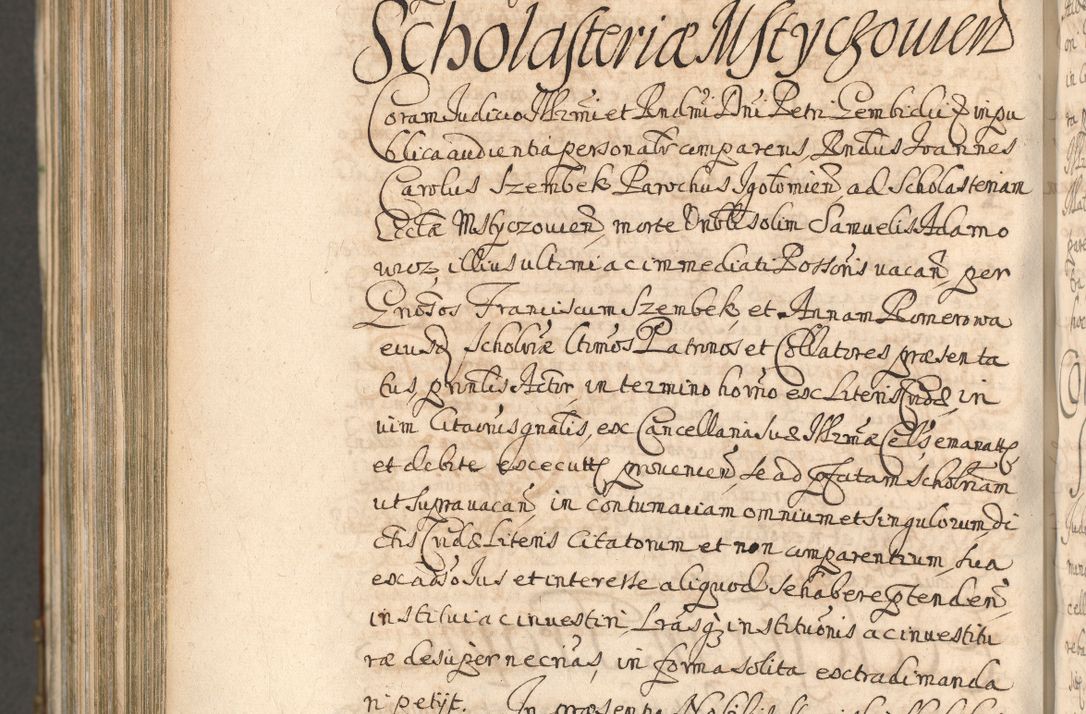 Scholasteriæ Mstyczouien
Coram Judicio Illrmi et Rndmi Dni Petri Gembicki Eppi in pu
blica audientia personalr comparens Rndus Joannes
Carolus Szembek Parochus Igołomien, ad Scholasteriam
Ecclæ Mstyczouien, morte Vnblis olim Samuelis Adamo
wicz, illius ultimi ac immediati Possoris vacan, per
Gnosos Franciscum Szembek, et Annam Romerowa
eiusd Scholriæ ltimos Patronos et Collatores præsenta
tus prnlis Actor, in termino horno ex Literis Cridæ, in
vim Citaonis gnalis, ex Cancellaria suæ Illrmæ Cels emanatt
et debite executt provenien, se ad pfatam Scholriam
ut supra vacan, in contumaciam omnium et singulorum, di
ctis Cridæ Literis Citatorum et non comparentium, sua
ex adso Jus et interesse aliquod se habere ptenden,
institui ac investiri, Lrasq institutionis ac investitu
ræ desuper necrias, in forma solita extradi manda
ri petijt. In præsentia Nobilis